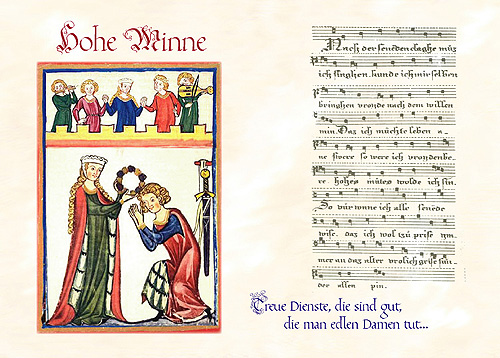 Hohe Minne
Nach der senedenclaghe müz
ich singhen. kunde ich mir selben
bringhen vronde nach dem willen
min. Daz ich müchte leben a-
ne swere so were ich vrondenbe-
re hohes mütes wolde ich sin.
So vür wnne ich alle senede
wise. daz ich wol tzü prise um
mer an daz alter vrolich grise
der allen pin.
Treue Dienste, die sind gut,
die man edlen Damen tut...